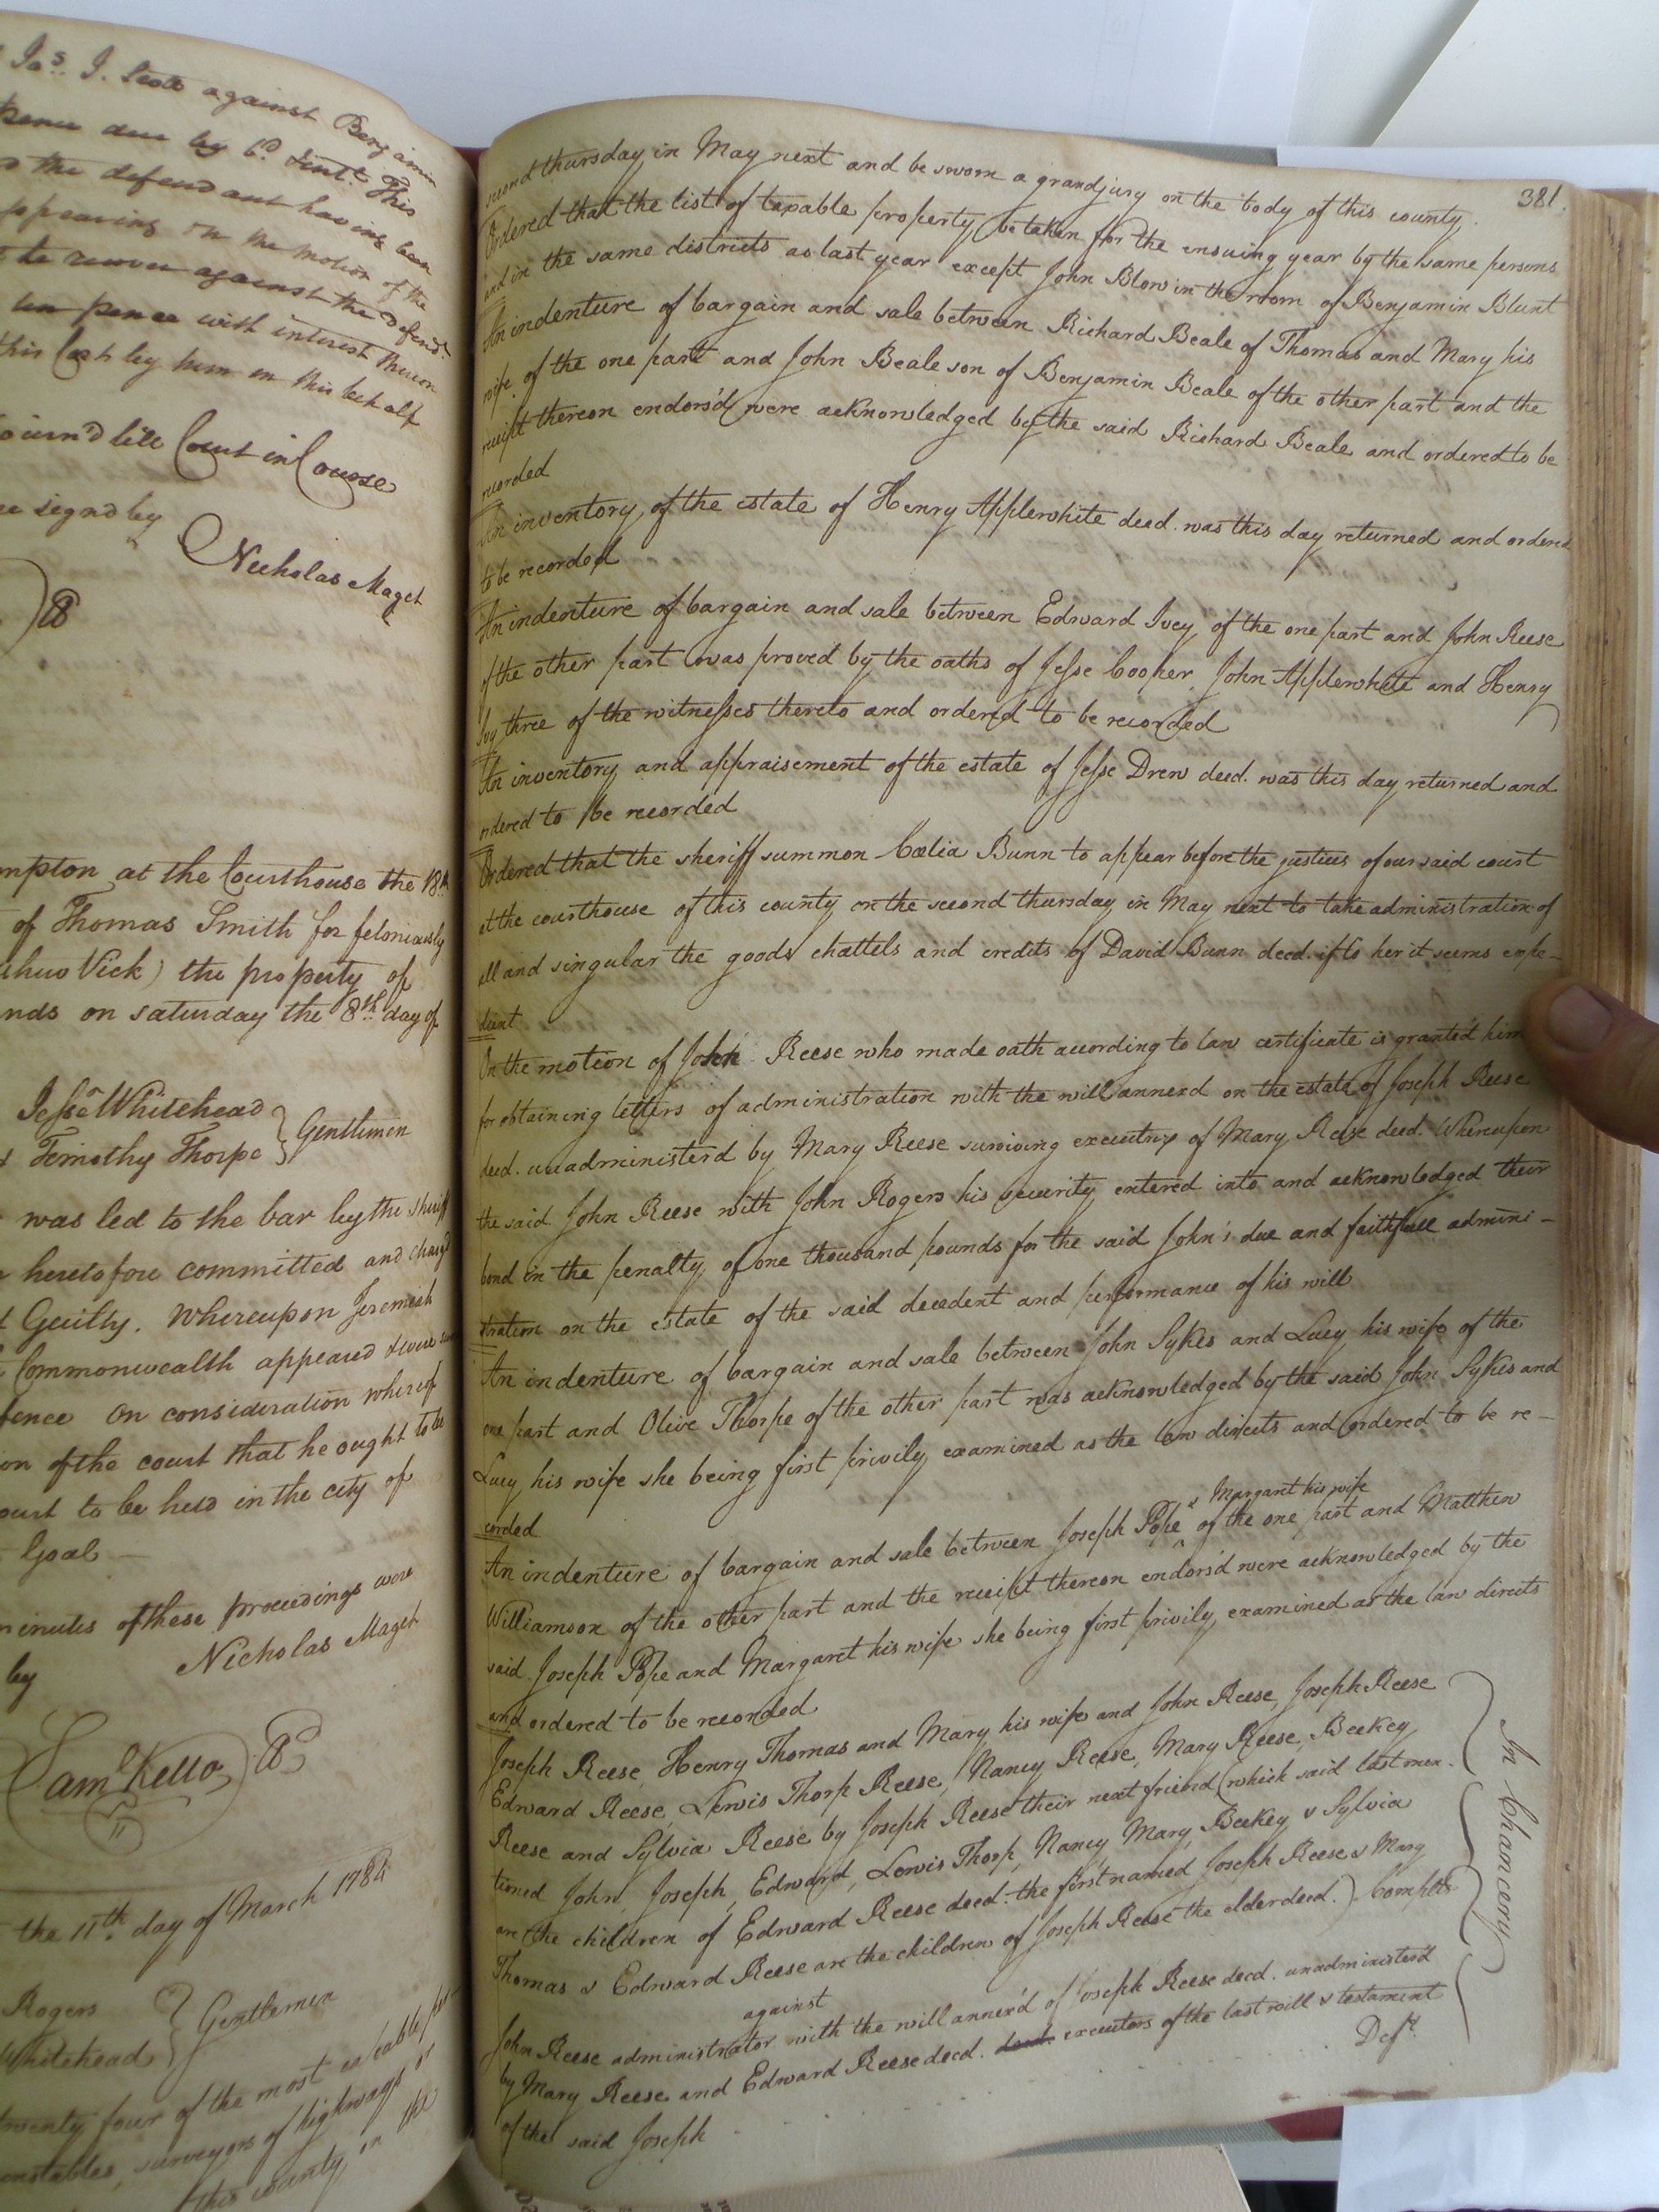 Jas. J. Scott against Benjamin
pence due by
the defendant having been
appearing on the motion of the
to recover against the Defend.t
ten pence with interest thereon
this Cost by him in this behalf
Court in Course
signd by
Nicholas Maget
mpton at the Courthouse the 18th
of Thomas Smith for feloniously
Vick) the property of
nds on saturday the 8th day of
Jesse Whitehead
Timothy Thorpe } Gentlemen
was led to the bar by the sheriff
heretofore committed and charg'd
Guilty. Whereupon Jeremiah
Commonwealth appeared & were
fence On consideration whereof
on of the court that he ought to be
ourt to be held in the city of
Goal
minutes of these proceedings were
by Nicholas Maget
Saml Kello
the 11th day of March 1784
Rogers } Gentlemen
Whitehead
twenty four of the most capable
onstables, surveyors of highways or
this county in the
381.
second thursday in May next and be sworn a grandjury on the body of this county.
Ordered that the list of taxable property be taken for the ensuing year by the same persons
and in the same districts as last year except John Blow in the room of Benjamin Blunt
An indenture of bargain and sale between Richard Beale of Thomas and Mary his
wife of the one part and John Beale son of Benjamin Beale of the other part and the
receipt thereon endors'd were acknowledged by the said Richard Beale and ordered to be
recorded
An inventory of the estate of Henry Applewhite deed. was this day returned and ordered
to be recorded
An indenture of bargain and sale between Edward Ivey of the one part and John Reese
of the other part was proved by the oaths of Jesse Cooper John Applewhite and Henry
Ivy three of the witnesses thereto and ordered to be recorded
An inventory and appraisement of the estate of Jesse Drew deed. was this day returned and
ordered to be recorded
Ordered that the sheriff summon Cœlia Bunn to appear before the justices of our said court
at the courthouse of this county on the second thursday in May next to take administration of
all and singular the goods chattels and credits of David Bunn deed. if to her it seems expe-
dient
On the motion of John Reese who made oath according to law certificate is granted him
for obtaining letters of administration with the will annexd on the estate of Joseph Reese
deed. unadministerd by Mary Reese surviving executrix of Mary Reese deed. Whereupon
the said John Reese with John Rogers his security entered into and acknowledged their
bond in the penalty of one thousand pounds for the said John's due and faithfull admini-
stration on the estate of the said decedent and performance of his will
An indenture of bargain and sale between John Sykes and Lucy his wife of the
one part and Olive Thorpe of the other part was acknowledged by the said John Sykes and
Lucy his wife she being first privily examined as the law directs and ordered to be re-
corded
An indenture of bargain and sale between Joseph Pope & Margaret his wife of the one part and Matthew
Williamson of the other part and the receipt thereon endors'd were acknowledged by the
said Joseph Pope and Margaret his wife she being first privily examined as the law directs
and ordered to be recorded
Joseph Reese, Henry Thomas and Mary his wife and John Reese, Joseph Reese
Edward Reese, Lewis Thorp Reese, Nancy Reese, Mary Reese, Beckey
Reese and Sylvia Reese by Joseph Reese their next friend (which said last men-
tioned John, Joseph, Edward, Lewis Thorp, Nancy, Mary, Beckey & Sylvia
are the children of Edward Reese deed. the first named Joseph Reese & Mary
Thomas & Edward Reese are the children of Joseph Reese the elder deed.) Complts
against
John Reese administrator with the will annex'd of Joseph Reese deed. unadministerd
by Mary Reese and Edward Reese decd. executors of the last will & testament
of the said Joseph Deft.
In Chancery